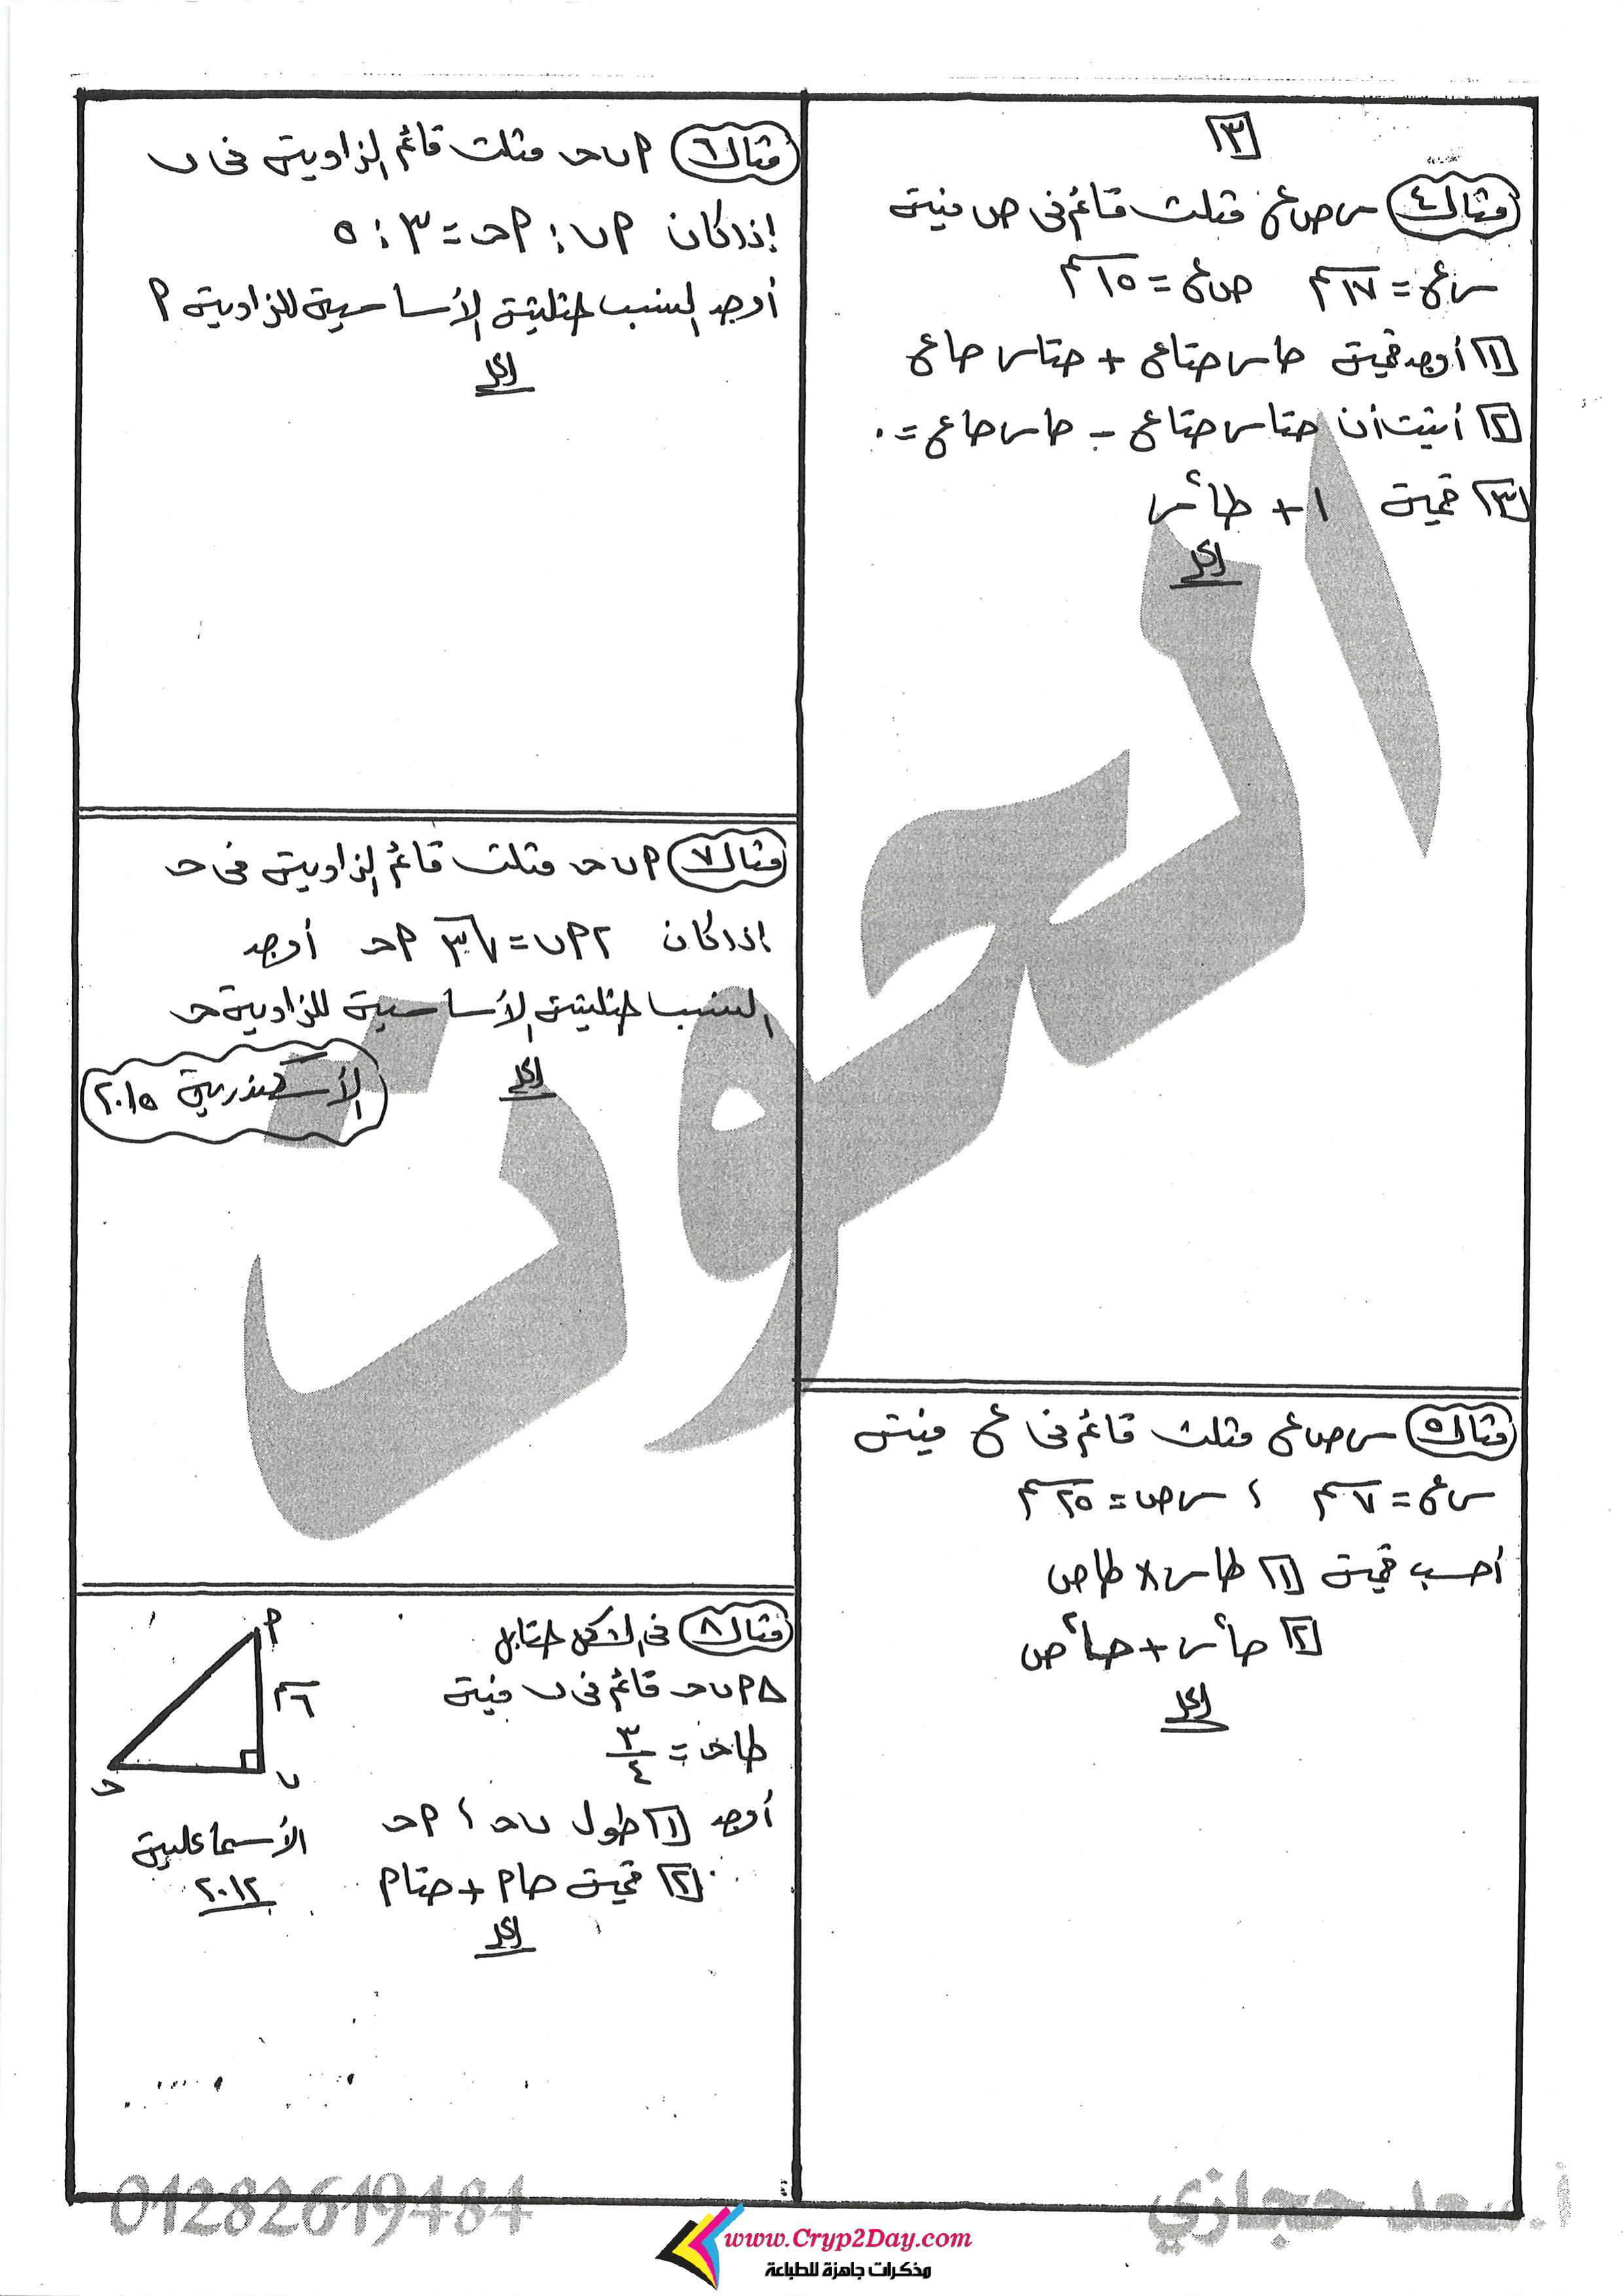 ٣
مثال ٤ س ص ع مثلث قائم فى ص فيه
س ع = ١٧ سم ص ع = ١٥ سم
١ أوجد قيمة جا س جتا ع + جتا س جا ع
٢ أثبت أن جتا س جتا ع - جا س جا ع = ٠
٣ قيمة ١ + طا٢ س
الحل
مثال ٥ س ص ع مثلث قائم فى ع فيه
س ع = ٧ سم ، س ص = ٢٥ سم
احسب قيمة ١ طا س × طا ص
٢ جا٢ س + جا٢ ص
الحل
مثال ٦ أ ب ج مثلث قائم الزاوية فى ب
إذا كان أ ب : أ ج = ٣ : ٥
أوجد النسب المثلثية الأساسية للزاوية أ
الحل
مثال ٧ أ ب ج مثلث قائم الزاوية فى ج
إذا كان ٢ أ ب = √٣ أ ج أوجد
النسب المثلثية الأساسية للزاوية ج
الحل
الأسكندرية ٢٠١٥
مثال ٨ فى الشكل المقابل
△ أ ب ج قائم فى ب فيه
طا ج = ٣/٤
أوجد ١ طول ب ج ، أ ج
٢ قيمة جا أ + جتا أ
الحل
أ
٦ سم
ب
ج
الأسماعلية
٢٠١٢
العون
01282619484
أ.سعد حجازي
www.Cryp2Day.com
مذكرات جاهزة للطباعة